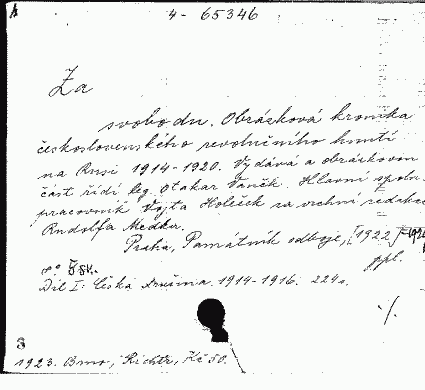 4- 65346
Za
svobodu. Obrázková kronika
československého revolučního hnutí
na Rusi 1914-1920. Vydává a obrázkovou
část řídí leg. Otakar Vaněk. Hlavní spolu-
pracovník Vojta Holeček za vrchní redakce
Rudolfa Medka.
Praha, Památník odboje, [1922]
8° ppl.
Díl I: Česká družina. 1914-1916. 224 s.
%
3
1923. Brno, Richtr, Kč 50.